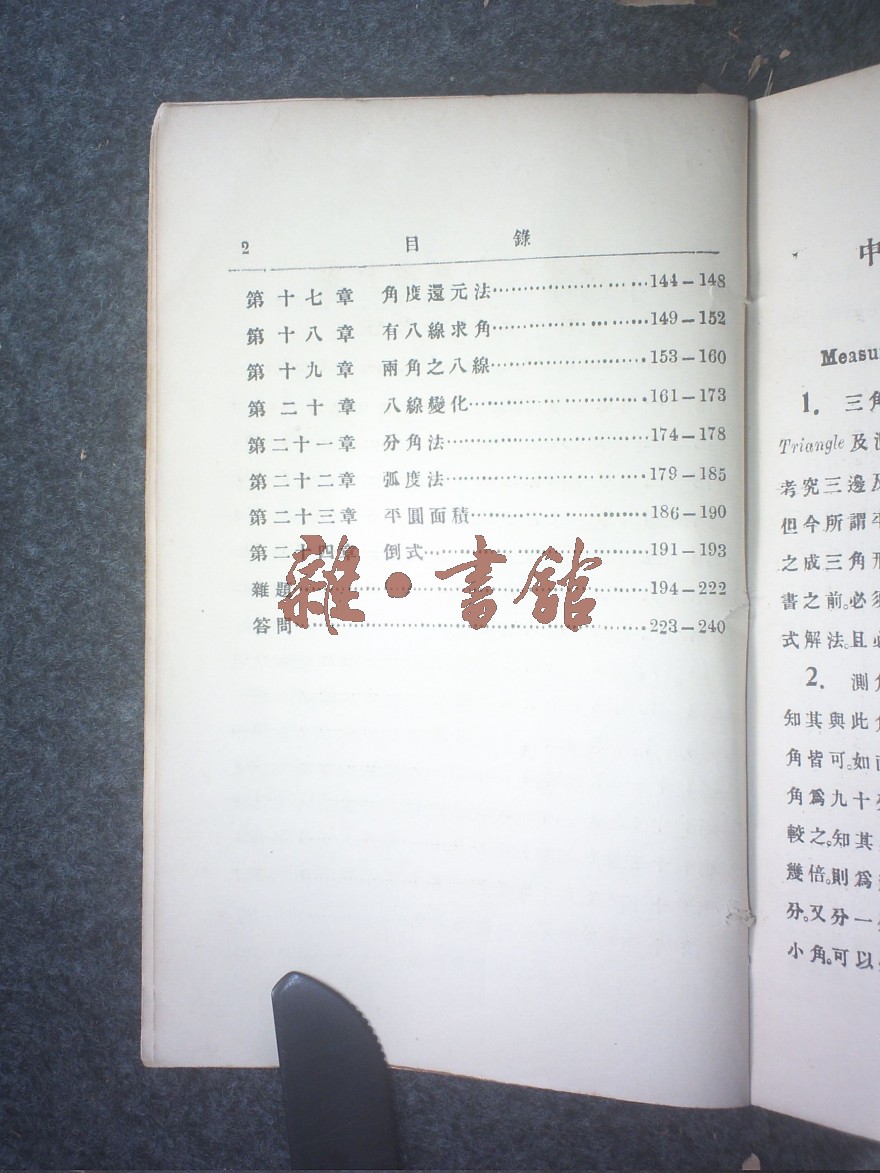 2 目 錄
第十七章 角度還元法……………………144—148
第十八章 有八線求角……………………149—152
第十九章 兩角之八線……………………153—160
第二十章 八線變化……………………161—173
第二十一章 分角法……………………174—178
第二十二章 弧度法……………………179—185
第二十三章 平圓面積……………………186—190
第二十四章 倒式……………………191—193
雜題……………………194—222
答問……………………223—240
雜·書館
中
Measu
1. 三角
Triangle 及
考究三邊及
但今所謂平
之成三角形
書之前。必須
式解法。且必
2. 測角
知其與此角
角皆可。如
角爲九十
較之。知其
幾倍。則爲
分。又分一
小角。可以